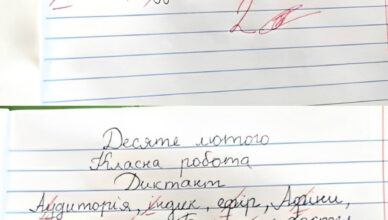 2
Десяте лютого
Класна робота
Диктант
Аудиторія, індик, ефір, Афіни,